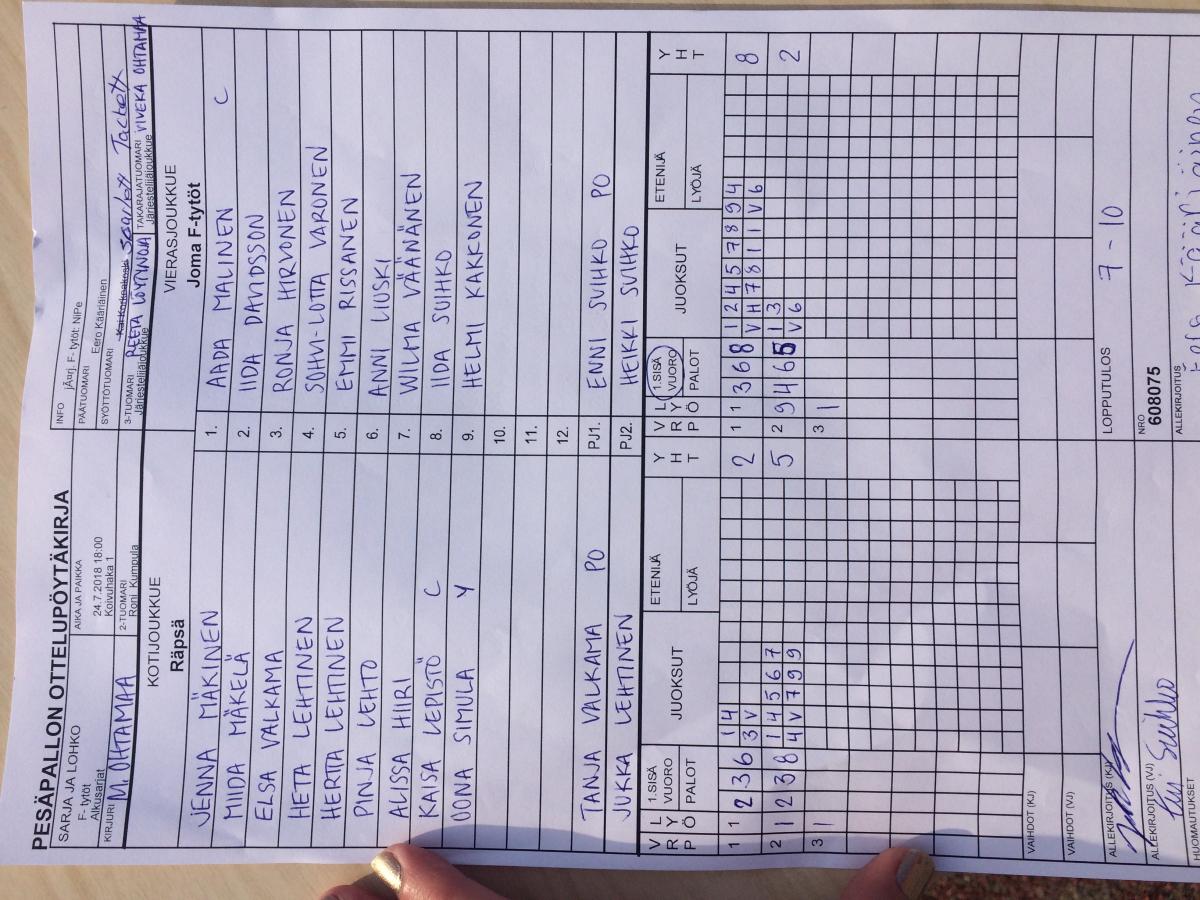 PESÄPALLON OTTELUPÖYTÄKIRJA
SARJA JA LOHKO
F- tytöt
Alkusarjat
AIKA JA PAIKKA
24.7.2018 18:00
Koivuhaka 1
INFO jÄurj. F- tytöt: NiPe
PÄÄTUOMARI Eero Kääriäinen
SYÖTTÖTUOMARI Kai Korkeakoski Scarlett Tackett
KIRJURI M. OHTAMAA
2-TUOMARI
Roni Kumpula
3-TUOMARI REETA LÖYTYNOJA
Järjestelijäjoukkue
TAKARAJATUOMARI VIVEKA OHTAMAA
Järjestelijäjoukkue
KOTIJOUKKUE
Räpsä
VIERASJOUKKUE
Joma F-tytöt
JENNA MÄKINEN 1. AADA MALINEN C
MIIDA MÄKELÄ 2. IIDA DAVIDSSON
ELSA VALKAMA 3. RONJA HIRVONEN
HETA LEHTINEN 4. SOHVI-LOTTA VARONEN
HERTTA LEHTINEN 5. EMMI RISSANEN
PINJA LEHTO 6. ANNI LIUSKI
ALISSA HIIRI 7. WILMA VÄÄNÄNEN
KAISA LEPISTÖ C 8. IIDA SUIHKO
OONA SIMULA Y 9. HELMI KAKKONEN
10.
11.
12.
TANJA VALKAMA PO PJ1. ENNI SUIHKO PO
JUKKA LEHTINEN PJ2. HEIKKI SUIHKO
V R P L Y Ö 1.SISÄ VUORO PALOT JUOKSUT ETENIJÄ LYÖJÄ Y H T V R P L Y Ö 1.SISÄ VUORO PALOT JUOKSUT ETENIJÄ LYÖJÄ Y H T
1 1 2 3 6 1 4 2 1 1 3 6 8 1 2 4 5 7 8 9 4 8
3 V V H 7 8 1 1 V 6
2 1 2 3 8 1 4 5 6 7 5 2 9 4 6 5 1 3 2
4 V 7 9 9 V 6
3 1 3 1
VAIHDOT (KJ)
VAIHDOT (VJ)
ALLEKIRJOITUS (KJ)
LOPPUTULOS 7 - 10
ALLEKIRJOITUS (VJ)
NRO
608075
HUOMAUTUKSET
ALLEKIRJOITUS